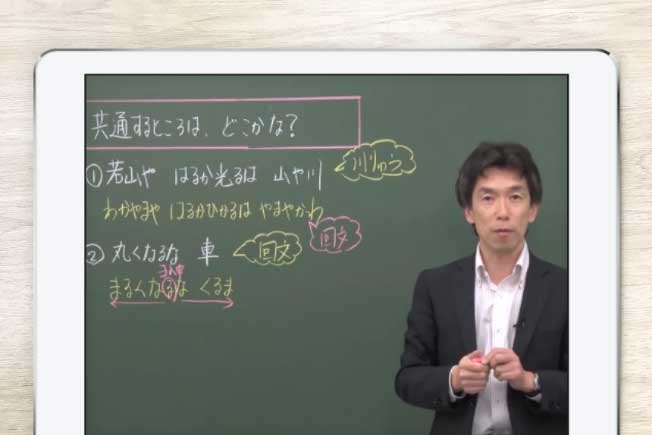 共通するところは、どこかな？
①若山や はるか光るは 山や川
川りゅう
わかやまや はるかひかるは やまやかわ
回文
②丸くなるな 車
回文
まん中
まるくなるな くるま